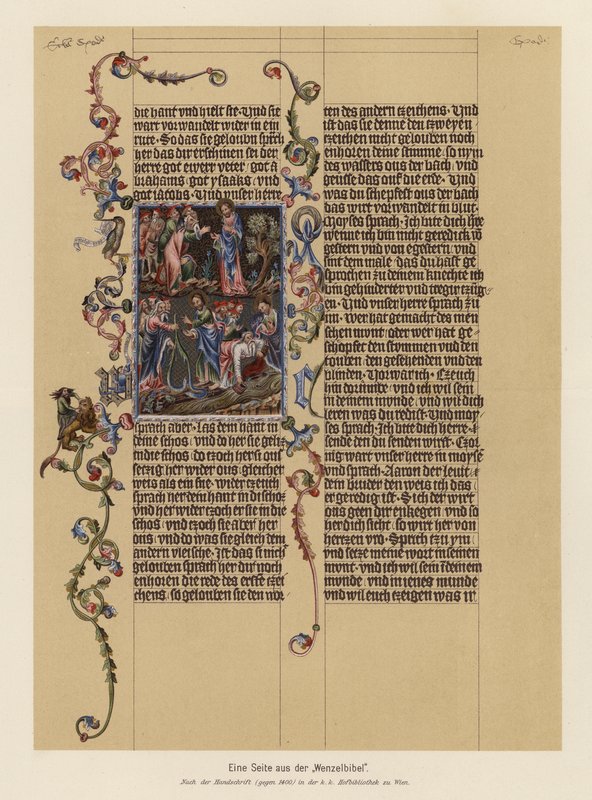 die hant vnd hielt sie · Und sie
wart vorwandelt wider in ein
rute · So das sie gelouben sprach
her das dir erschinen sei der
herre got ewerr veter / got a
brahams got ysaaks / vnd
got iacobs · Und vnser herre
sprach aber · Las dein hant in
deine schos / vnd do her sie geliz
in die schos / do tzoch her si ouz
setzig her wider ous gleicher
weis als ein sne · wider tzeuch
sprach her dein hant in di schoz
vnd her wider tzoch er sie in die
schos / vnd tzoch sie aber her
ous / vnd do was sie gleich dem
andern vleische · Ist das si nicht
gelouben sprach her dir noch
enhoren die rede des ersten tzei
chens / so gelouben sie den wor
ten des andern tzeichens · Und
ist das sie denne den tzweyen
tzeichen nicht gelouben noch
enhoren deine stimme / so nym
des wassers ous der bach / vnd
geusse das ouf die erde · Und
was du schepfest ous der bach
das wirt vorwandelt in blut ·
Moyses sprach · Ich bite dich herre
wenne ich bin nicht geredick von
gestern vnd von egestern / vnd
sint dem male das du hast ge
sprochen zu deinem knechte ich
bin gehinderter vnd treger tzung
en · Und vnser herre sprach zu
im · Wer hat gemacht des men
schen munt / oder wer hat ge
schopfet den stummen vnd den
touben / den gesehenden vnd den
blinden / Nor war ich · Tzeuch
hin dorumbe / vnd ich wil sein
in deinem munde / vnd wil dich
leren was du redist · Und moy
ses sprach · Ich bite dich herre
sende den du senden wirst · Tzor
nig wart vnser herre in moyse
vnd sprach · Aaron der leuit
dein bruder den weis ich das
er geredig ist · Sich der wirt
ous geen dir enkegen / vnd so
her dich sicht / so wirt her von
hertzen vro · Sprich tzu ym
vnd setze meine wort in seinen
munt · vnd ich wil sein in deinem
munde / vnd in ienes munde
vnd wil euch tzeigen was ir
Eine Seite aus der „Wenzelbibel“.
Nach der Handschrift (gegen 1400) in der k. k. Hofbibliothek zu Wien.